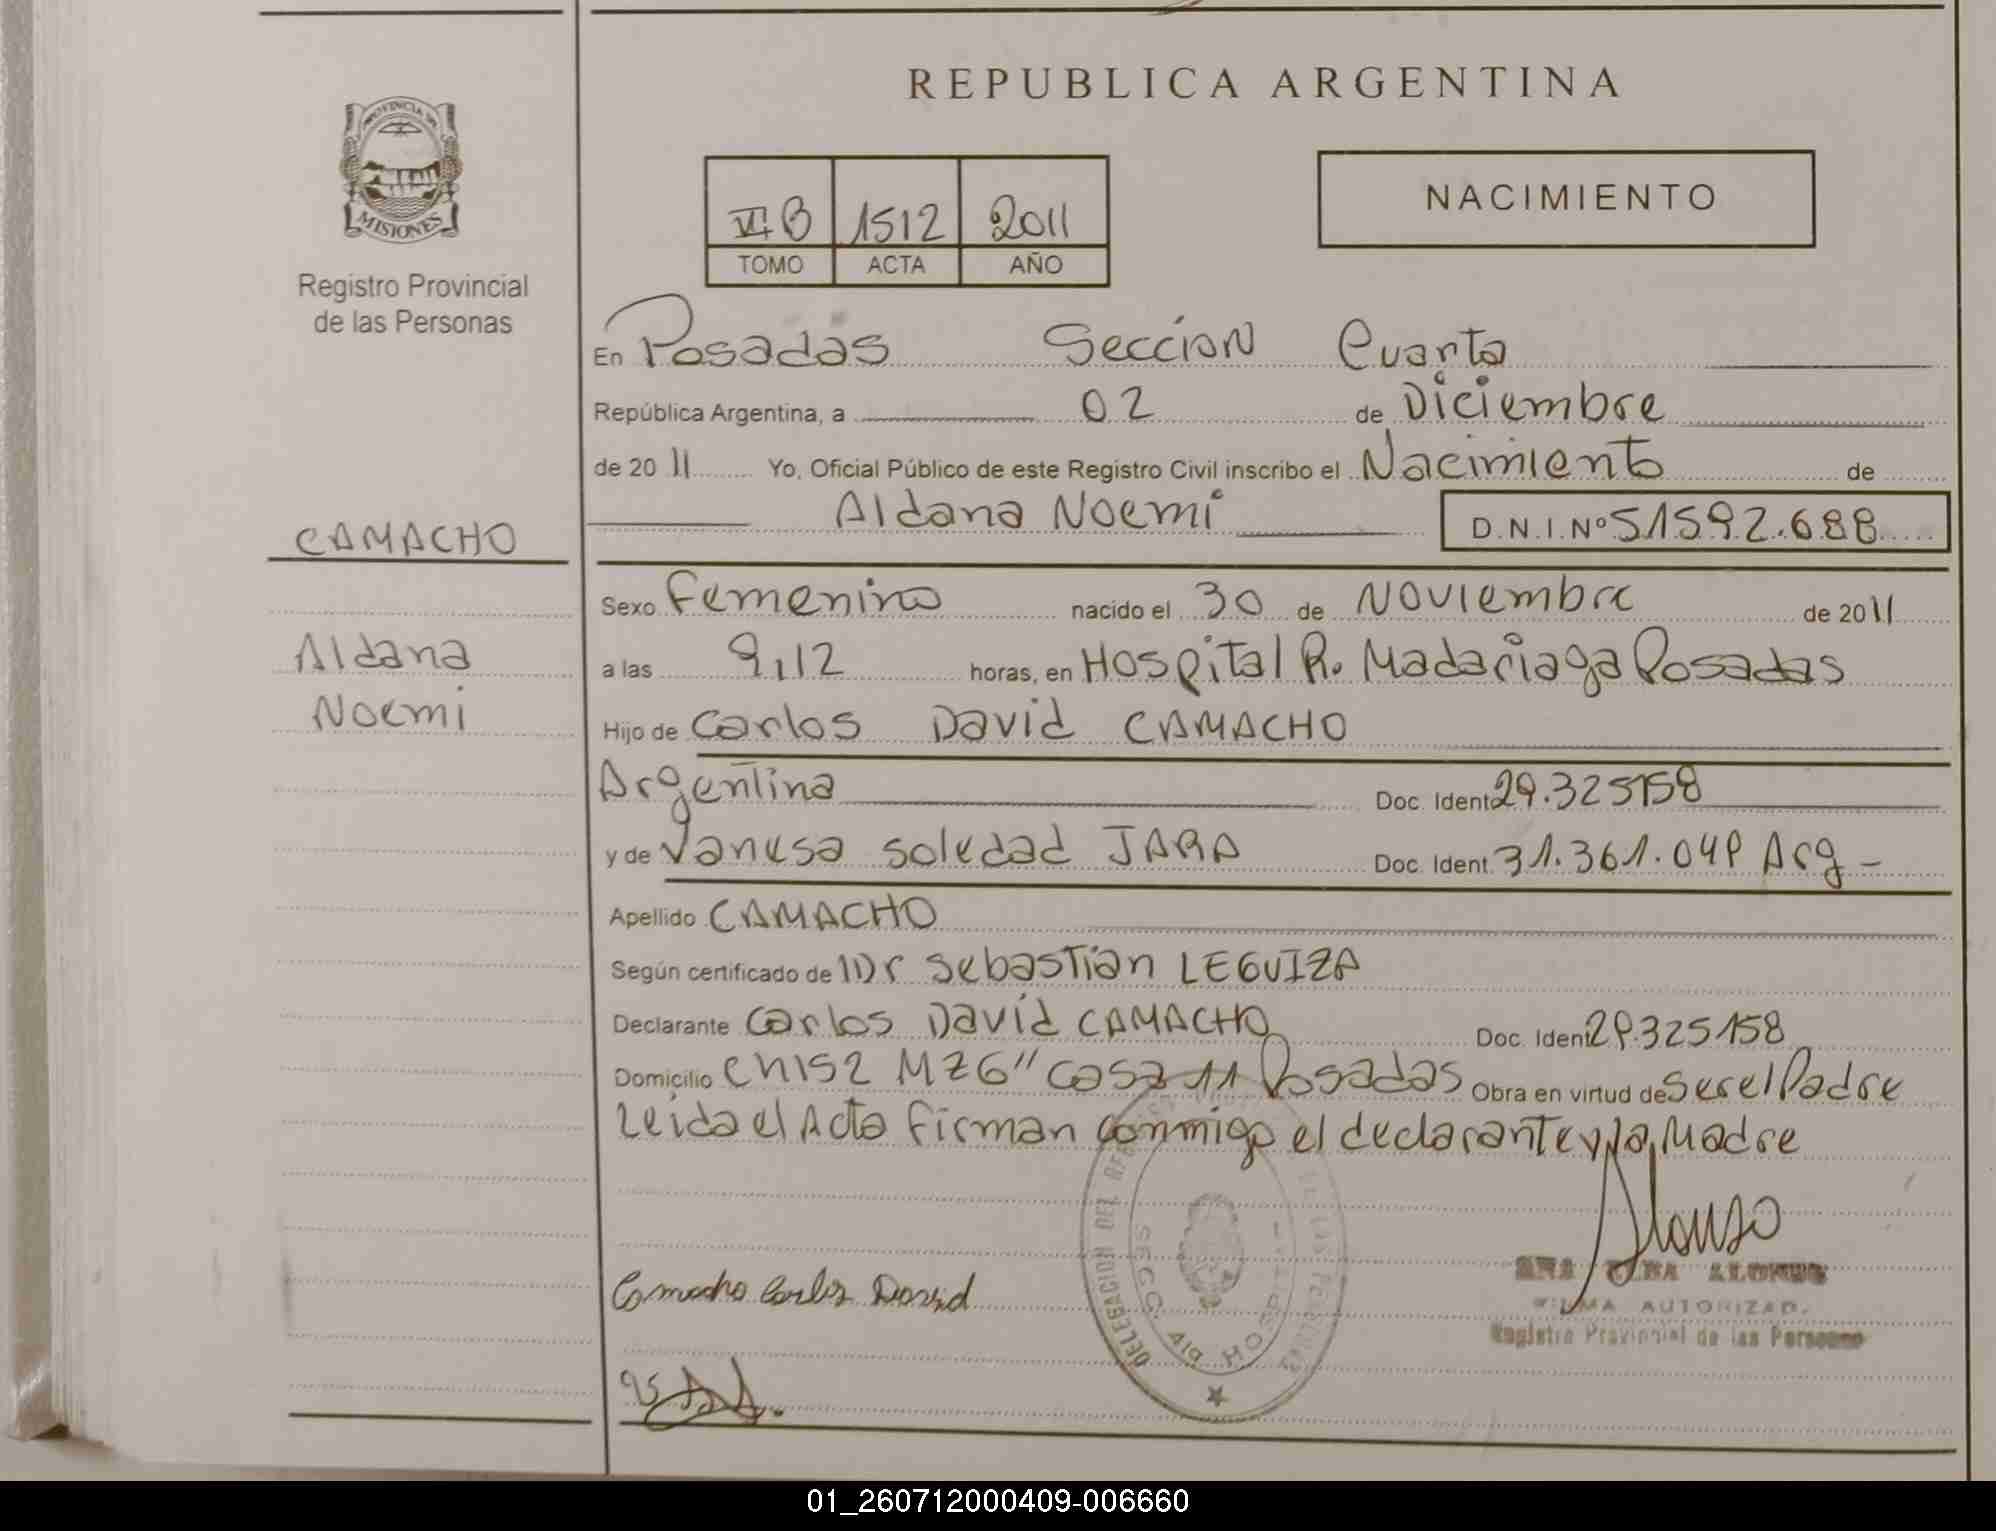 REPUBLICA ARGENTINA
PROVINCIA DE
MISIONES
Registro Provincial
de las Personas
VI B 1512 2011
TOMO ACTA AÑO
NACIMIENTO
En Posadas Sección Cuarta
República Argentina, a 02 de Diciembre
de 2011 Yo, Oficial Público de este Registro Civil inscribo el Nacimiento de
Aldana Noemi D.N.I.Nº 51592.688
CAMACHO
Aldana
Noemi
Sexo Femenino nacido el 30 de Noviembre de 2011
a las 9,12 horas, en Hospital R. Madariaga Posadas
Hijo de Carlos David CAMACHO
Argentina Doc. Ident. 29.325158
y de Vanesa Soledad JARA Doc. Ident. 31.361.049 Arg -
Apellido CAMACHO
Según certificado de Dr Sebastián LEGUIZA
Declarante Carlos David CAMACHO Doc. Ident. 29.325158
Domicilio CH152 MZ6" Casa 11 Posadas Obra en virtud de Ser el Padre
Leida el Acta Firman Conmigo el declarante y la Madre
Alonso
Camacho Carlos David
ALONSO
AUTORIZAD.
Registro Provincial de las Personas
DELEGACION DEL
SECC. 4ta HOSPI
01_260712000409-006660